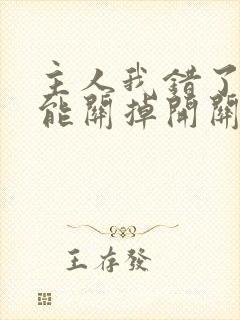 主人我错了
能關掉開關
王存發